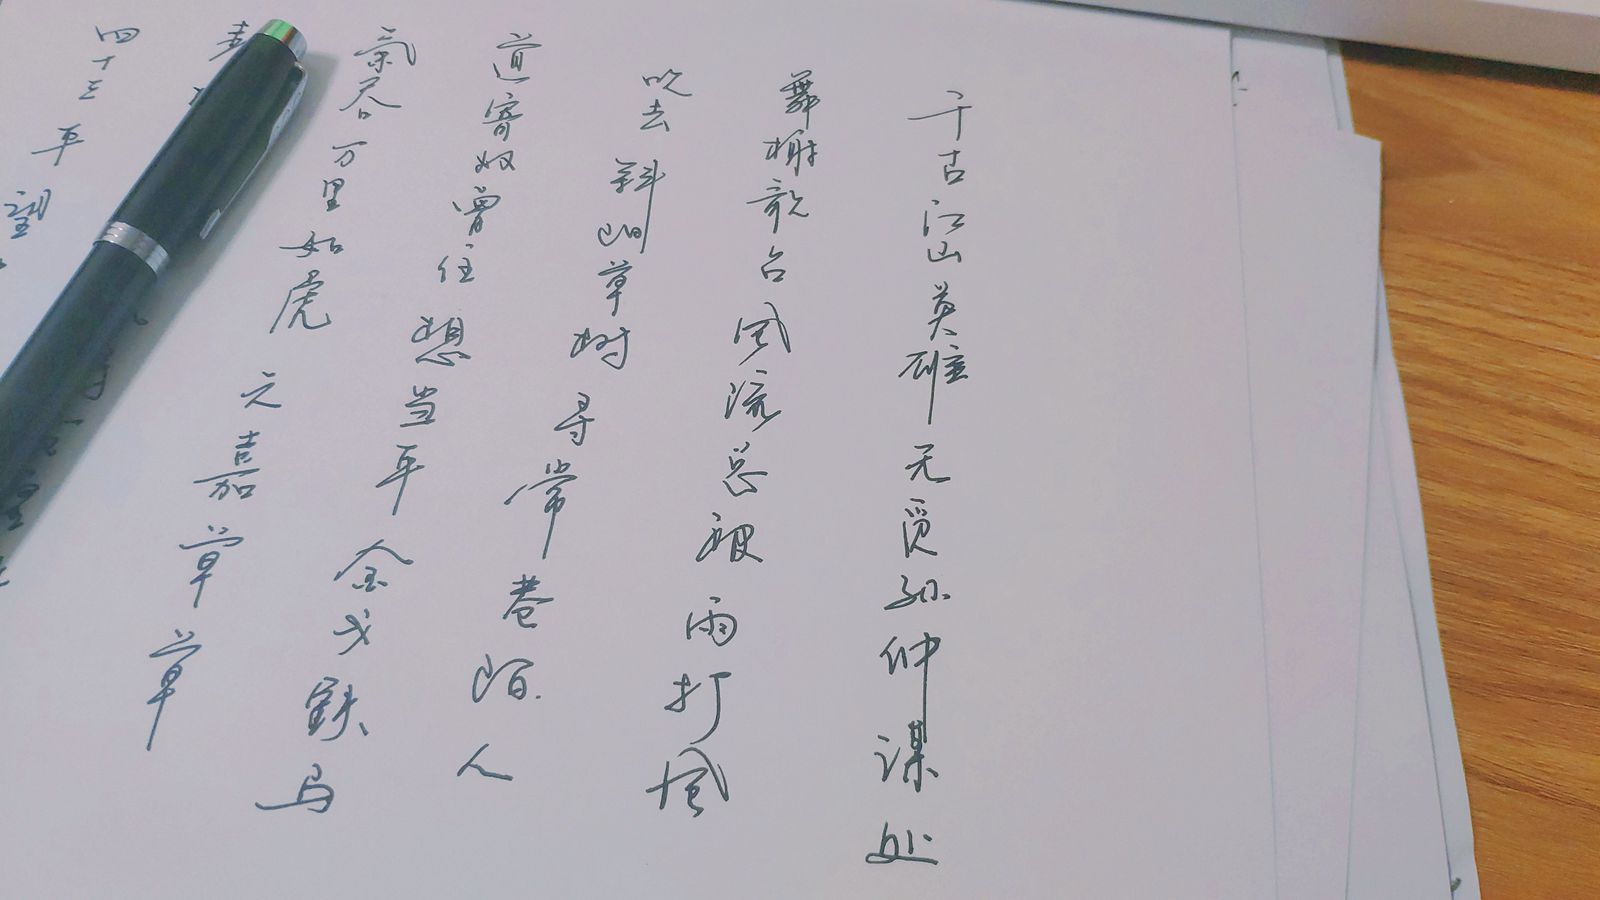 千古江山英雄无觅孙仲谋处
舞榭歌台风流总被雨打风
吹去斜阳草树寻常巷陌人
道寄奴曾住想当年金戈铁马
氣吞万里如虎元嘉草草
四十三年望